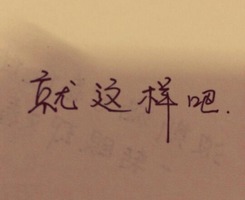 就这样吧.